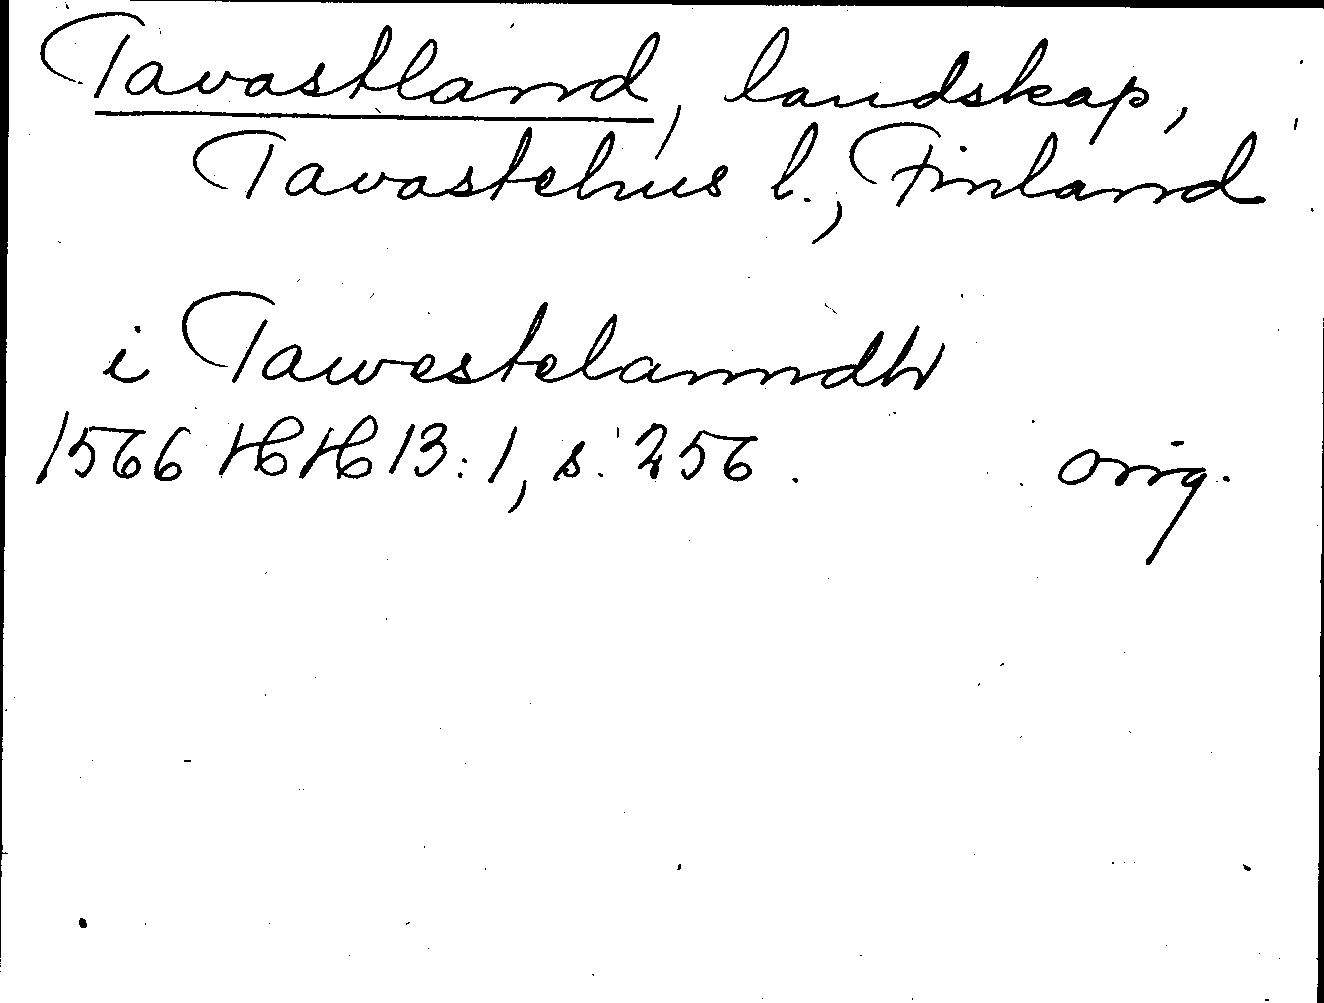 Tavastland, landskap,
Tavastehus l., Finland
i Tawestelanndh
1566 HH 13:1, s. 256. orig.